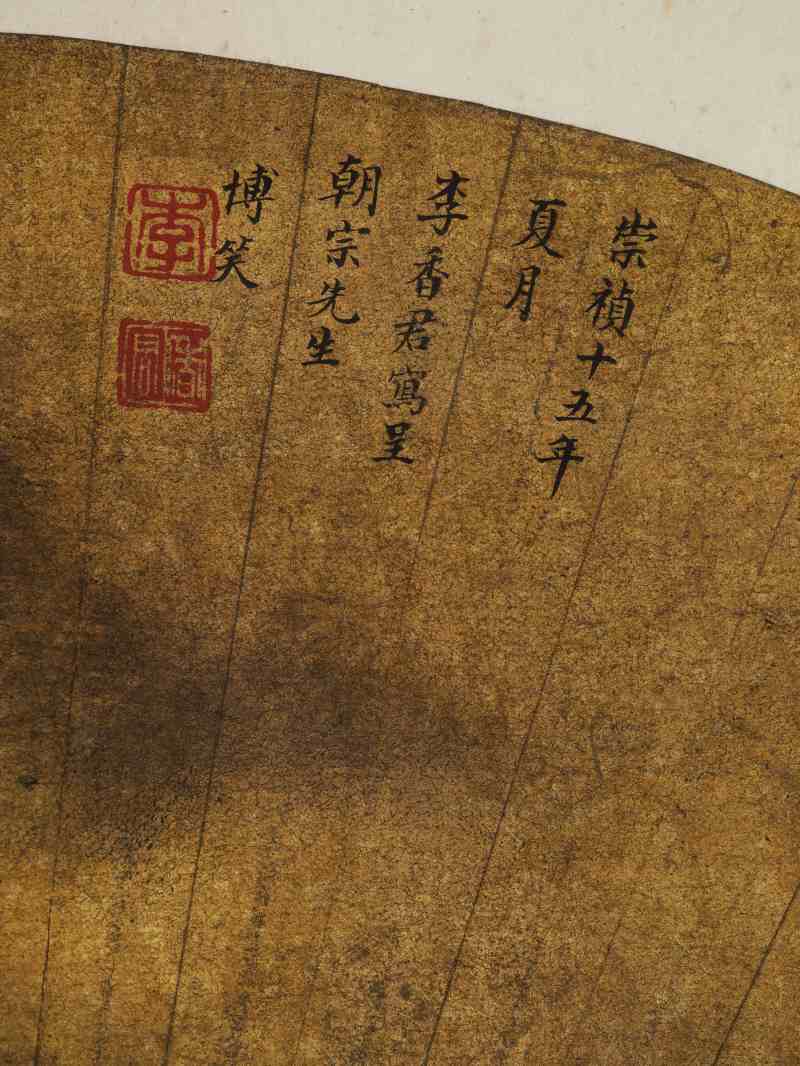 崇禎十五年
夏月
李香君寫呈
朝宗先生
博笑
李
香君